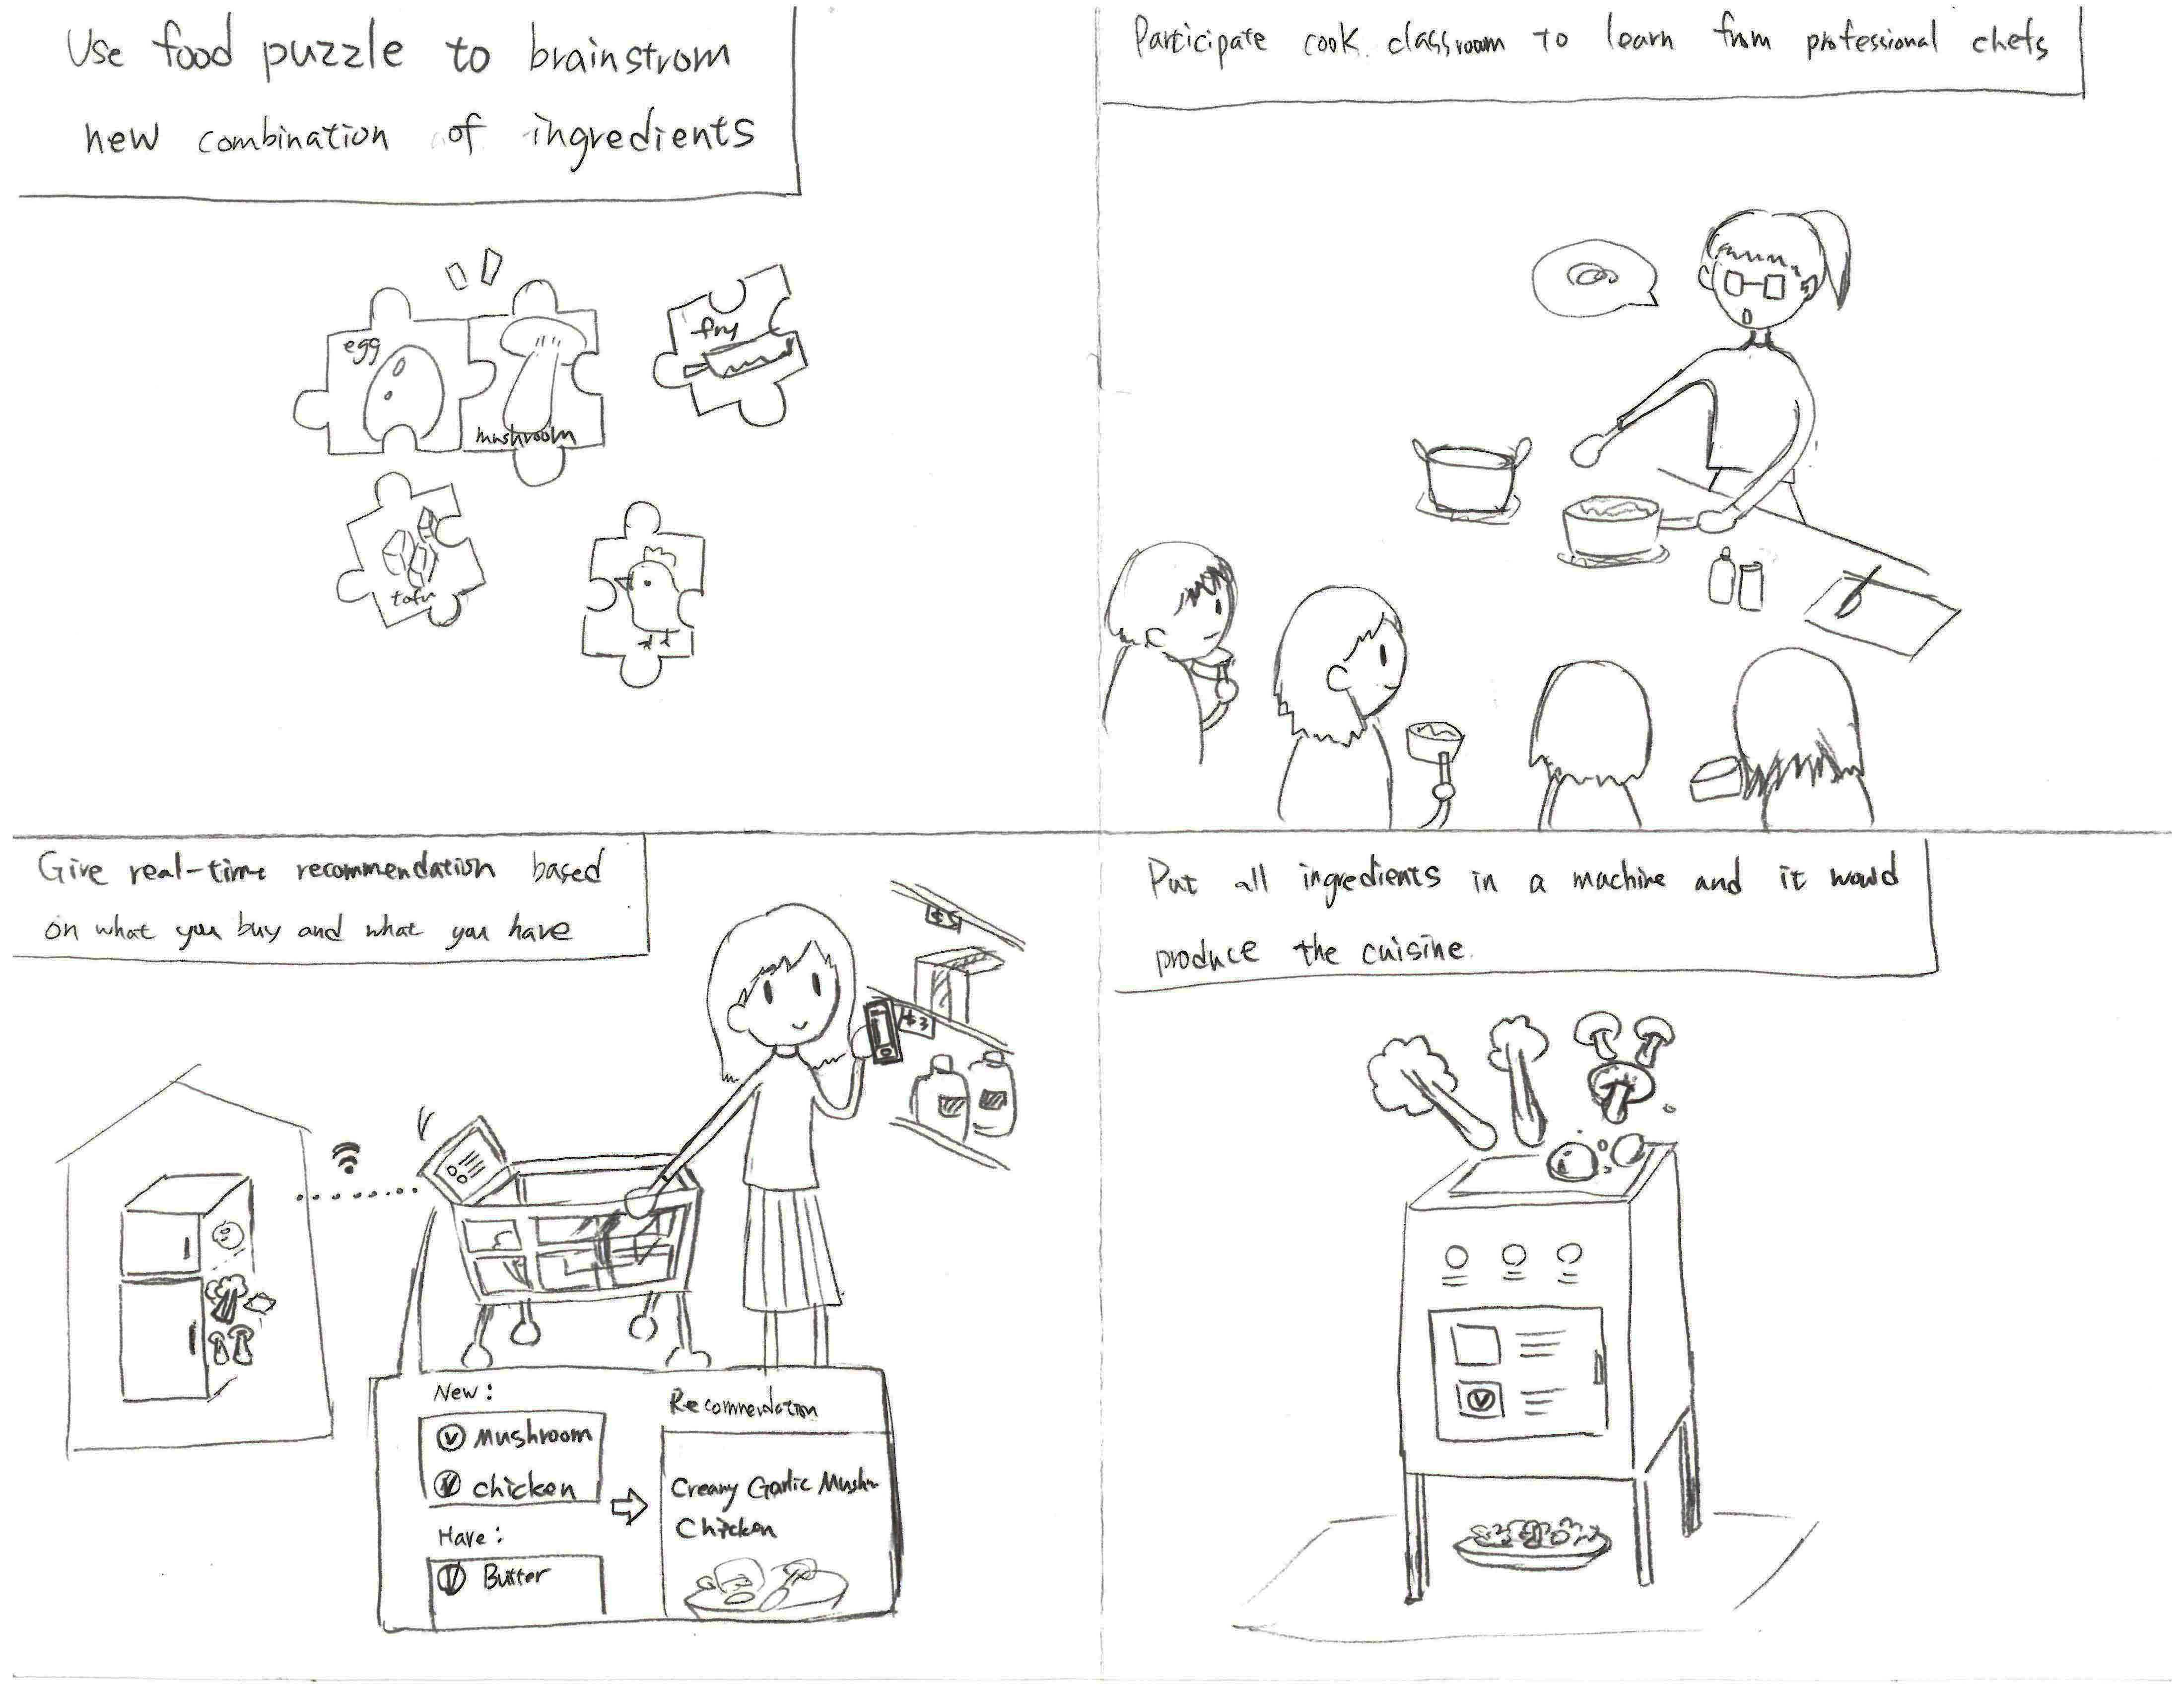 Use food puzzle to brainstrom
new combination of ingredients
egg
mushroom
fry
tofu
Participate cook classroom to learn from professional chefs
Give real-time recommendation based
on what you buy and what you have
$5
$3
New:
mushroom
chicken
Have:
Butter
Recommendation
Creamy Garlic Mush
Chicken
Put all ingredients in a machine and it would
produce the cuisine.